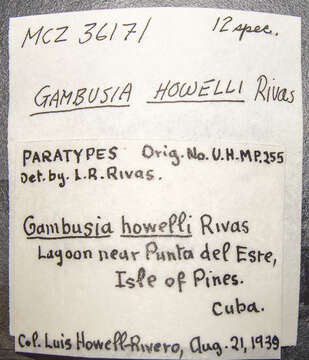 MCZ 36171 12 spec.
GAMBUSIA HOWELLI Rivas
PARATYPES Orig. No. U.H.M.P. 255
Det. by. L.R. RIVAS.
Gambusia howelli Rivas
Lagoon near Punta del Este,
Isle of Pines.
Cuba.
Col. Luis Howell-Rivero, Aug. 21, 1939